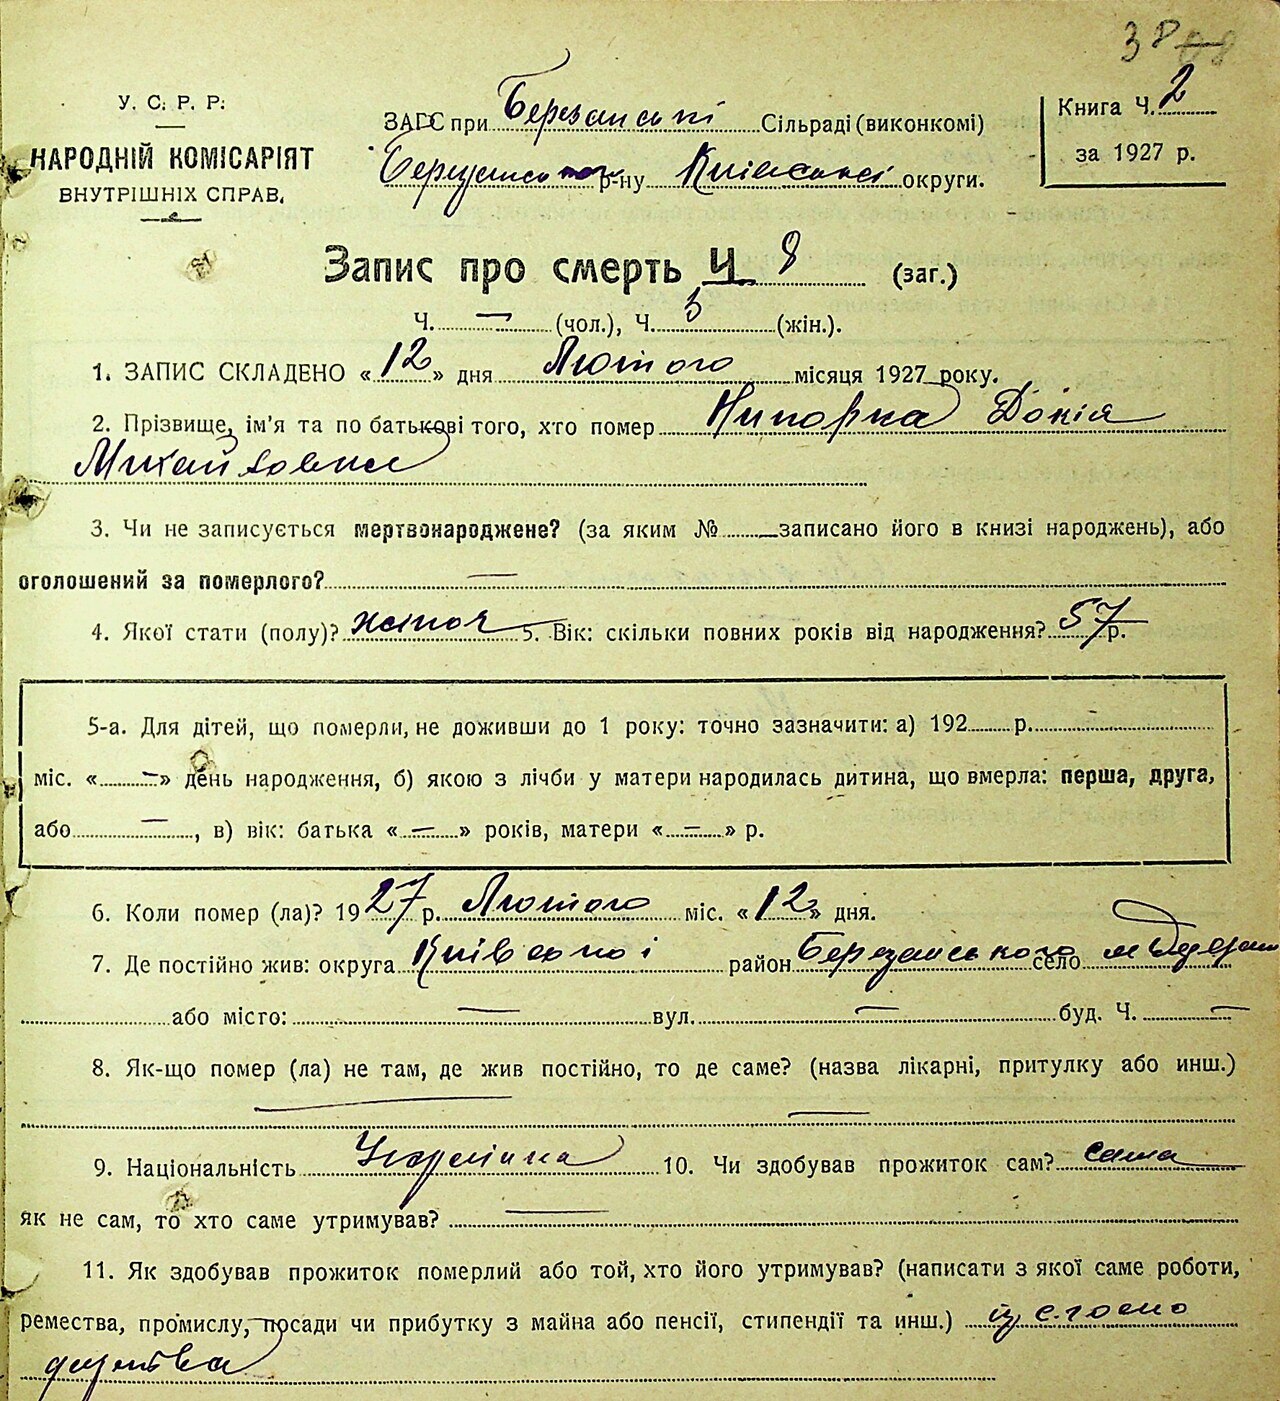 38
У. С. Р. Р.
НАРОДНІЙ КОМІСАРІЯТ
ВНУТРІШНІХ СПРАВ.
ЗАГС при Березанські Сільраді (виконкомі)
р-ну Київської округи.
Книга Ч. 2
за 1927 р.
Запис про смерть Ч 8 (заг.)
Ч. — (чол.), Ч. 5 (жін.).
1. ЗАПИС СКЛАДЕНО «12» дня Лютого місяця 1927 року.
2. Прізвище, ім'я та по батькові того, хто помер Нипорка Докія
Михайловна
3. Чи не записується мертвонароджене? (за яким № — записано його в книзі народжень), або
оголошений за померлого? —
4. Якої стати (полу)? жіноч 5. Вік: скільки повних років від народження? 57 р.
5-а. Для дітей, що померли, не доживши до 1 року: точно зазначити: а) 192 р.
міс. «—» день народження, б) якою з лічби у матери народилась дитина, що вмерла: перша, друга,
або —, в) вік: батька «—» років, матери «—» р.
6. Коли помер (ла)? 1927 р. Лютого міс. «12» дня.
7. Де постійно жив: округа Київської район Березанського село м
або місто: — вул. — буд. Ч. —
8. Як-що помер (ла) не там, де жив постійно, то де саме? (назва лікарні, притулку або инш.)
— —
9. Національність Українка 10. Чи здобував прожиток сам? сама
як не сам, то хто саме утримував? —
11. Як здобував прожиток померлий або той, хто його утримував? (написати з якої саме роботи,
ремества, промислу, посади чи прибутку з майна або пенсії, стипендії та инш.) із с. госпо
дарства